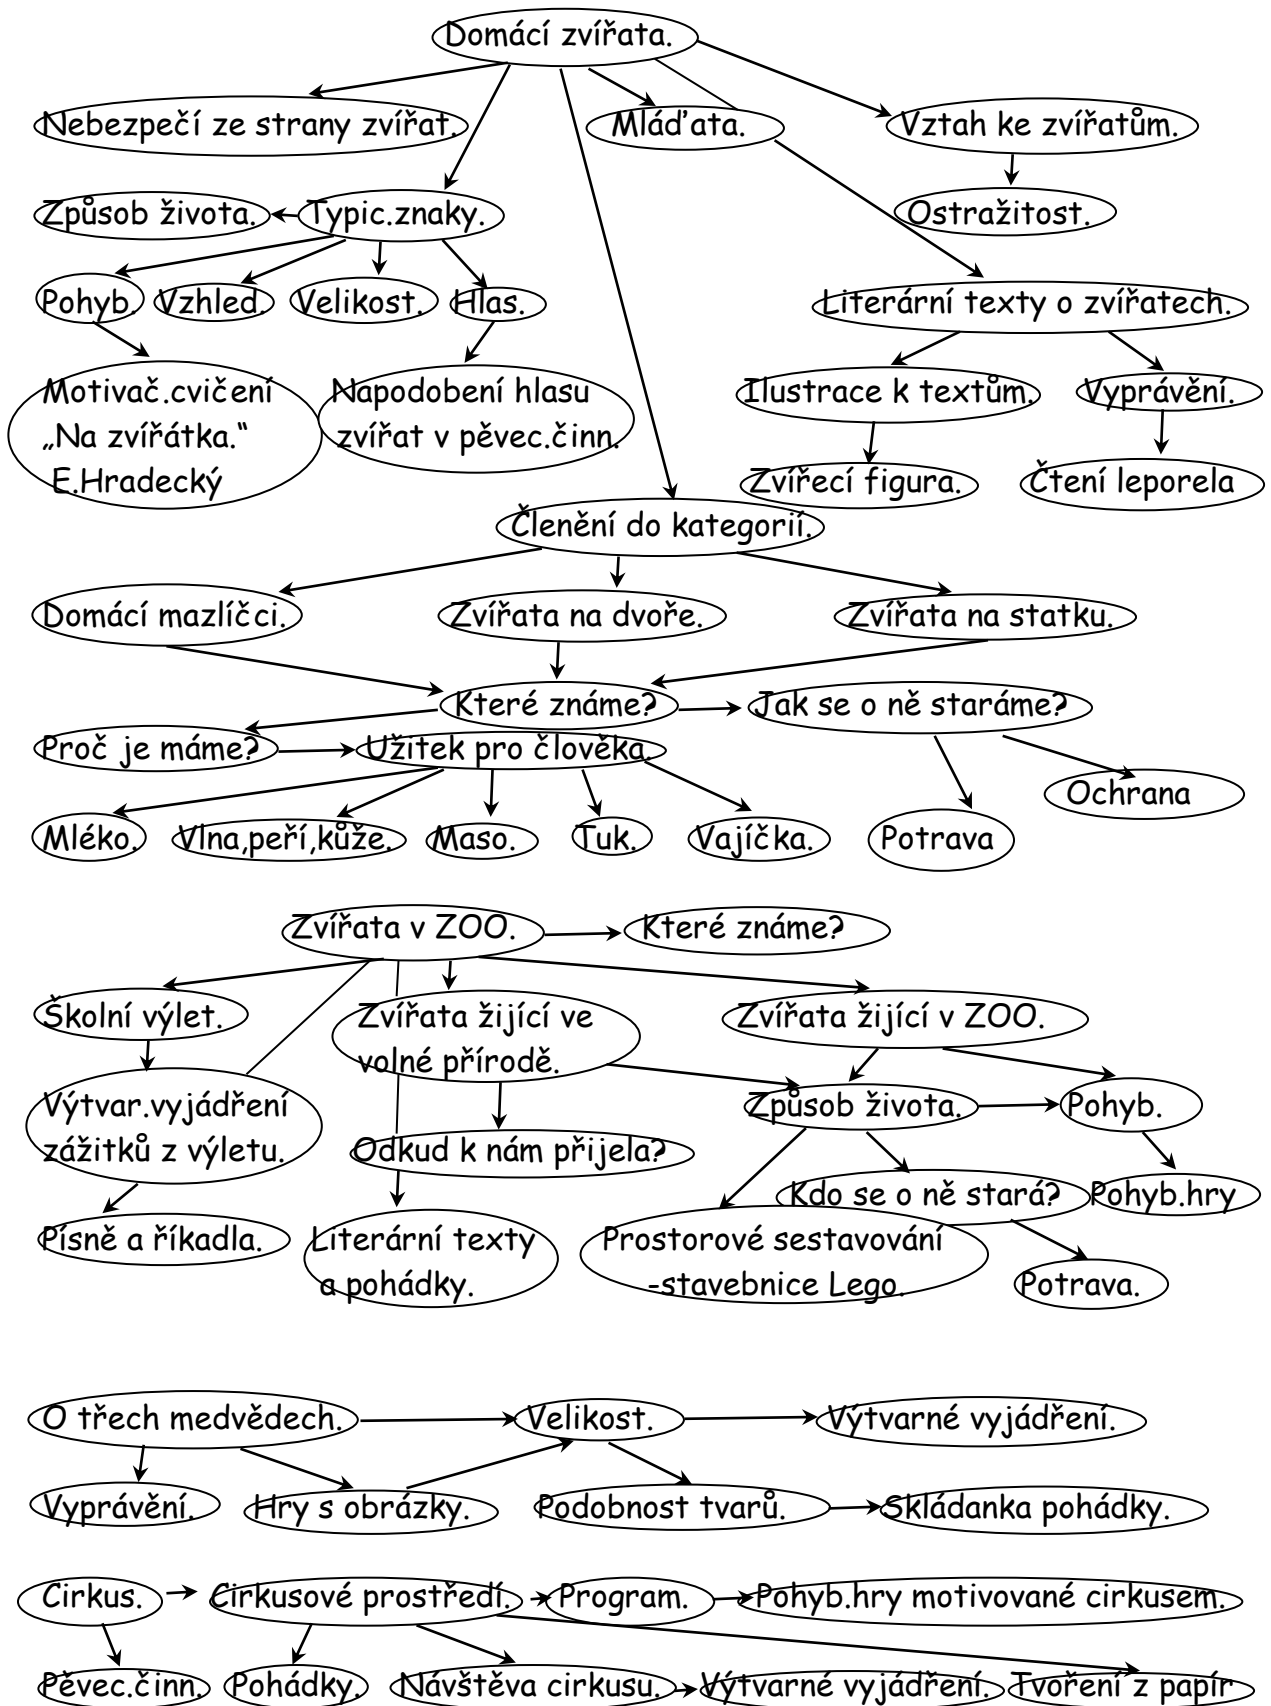 Domácí zvířata.
Nebezpečí ze strany zvířat.
Mláďata.
Vztah ke zvířatům.
Způsob života.
Typic.znaky.
Ostražitost.
Pohyb.
Vzhled.
Velikost.
Hlas.
Literární texty o zvířatech.
Motivač.cvičení
„Na zvířátka.“
E.Hradecký
Napodobení hlasu
zvířat v pěvec.činn.
Ilustrace k textům.
Vyprávění.
Zvířecí figura.
Čtení leporela
Členění do kategorií.
Domácí mazlíčci.
Zvířata na dvoře.
Zvířata na statku.
Které známe?
Jak se o ně staráme?
Proč je máme?
Užitek pro člověka.
Ochrana
Mléko.
Vlna,peří,kůže.
Maso.
Tuk.
Vajíčka.
Potrava
Zvířata v ZOO.
Které známe?
Školní výlet.
Zvířata žijící ve
volné přírodě.
Zvířata žijící v ZOO.
Výtvar.vyjádření
zážitků z výletu.
Způsob života.
Pohyb.
Odkud k nám přijela?
Kdo se o ně stará?
Pohyb.hry
Písně a říkadla.
Literární texty
a pohádky.
Prostorové sestavování
-stavebnice Lego.
Potrava.
O třech medvědech.
Velikost.
Výtvarné vyjádření.
Vyprávění.
Hry s obrázky.
Podobnost tvarů.
Skládanka pohádky.
Cirkus.
Cirkusové prostředí.
Program.
Pohyb.hry motivované cirkusem.
Pěvec.činn.
Pohádky.
Návštěva cirkusu.
Výtvarné vyjádření.
Tvoření z papír